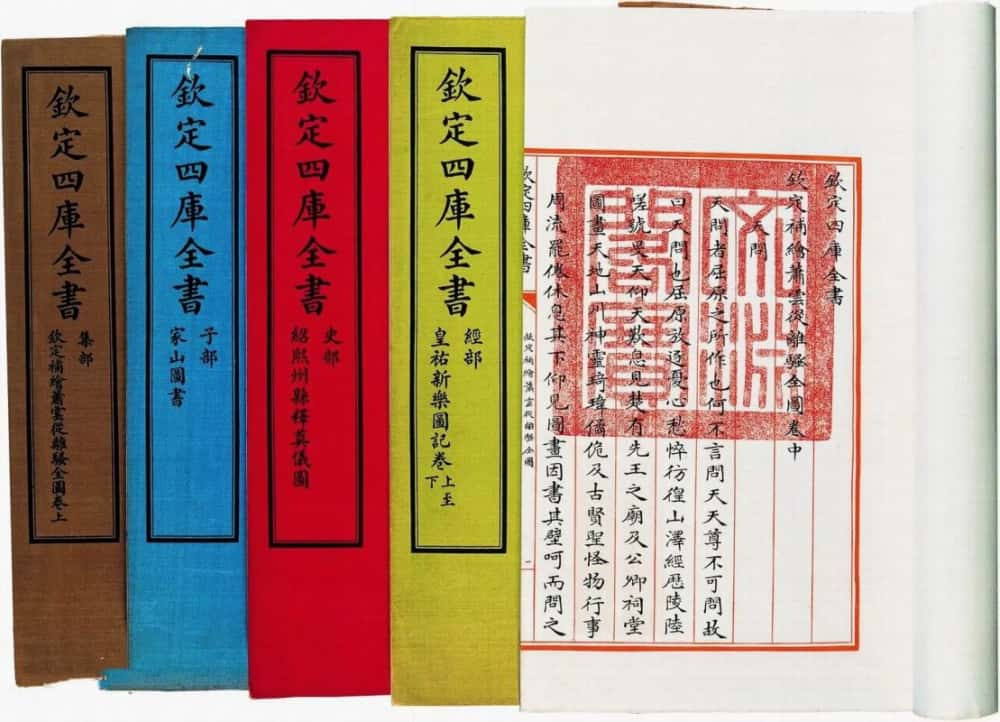 欽定四庫全書
欽定補繪蕭雲從離騷全圖卷中
天問
天問者屈原之所作也何不言問天天尊不可問故
曰天問也屈原放逐憂心愁悴彷徨山澤經歷陵陸
嗟號旻天仰天歎息見楚有先王之廟及公卿祠堂
圖畫天地山川神靈琦瑋僪佹及古賢聖怪物行事
周流罷倦休息其下仰見圖畫因書其壁呵而問之
欽定四庫全書
欽定補繪蕭雲從離騷全圖
一
文
閣寶
欽定四庫全書
經部
皇祐新樂圖記卷上至下
欽定四庫全書
史部
紹熙州縣釋奠儀圖
欽定四庫全書
子部
家山圖書
欽定四庫全書
集部
欽定補繪蕭雲從離騷全圖卷上